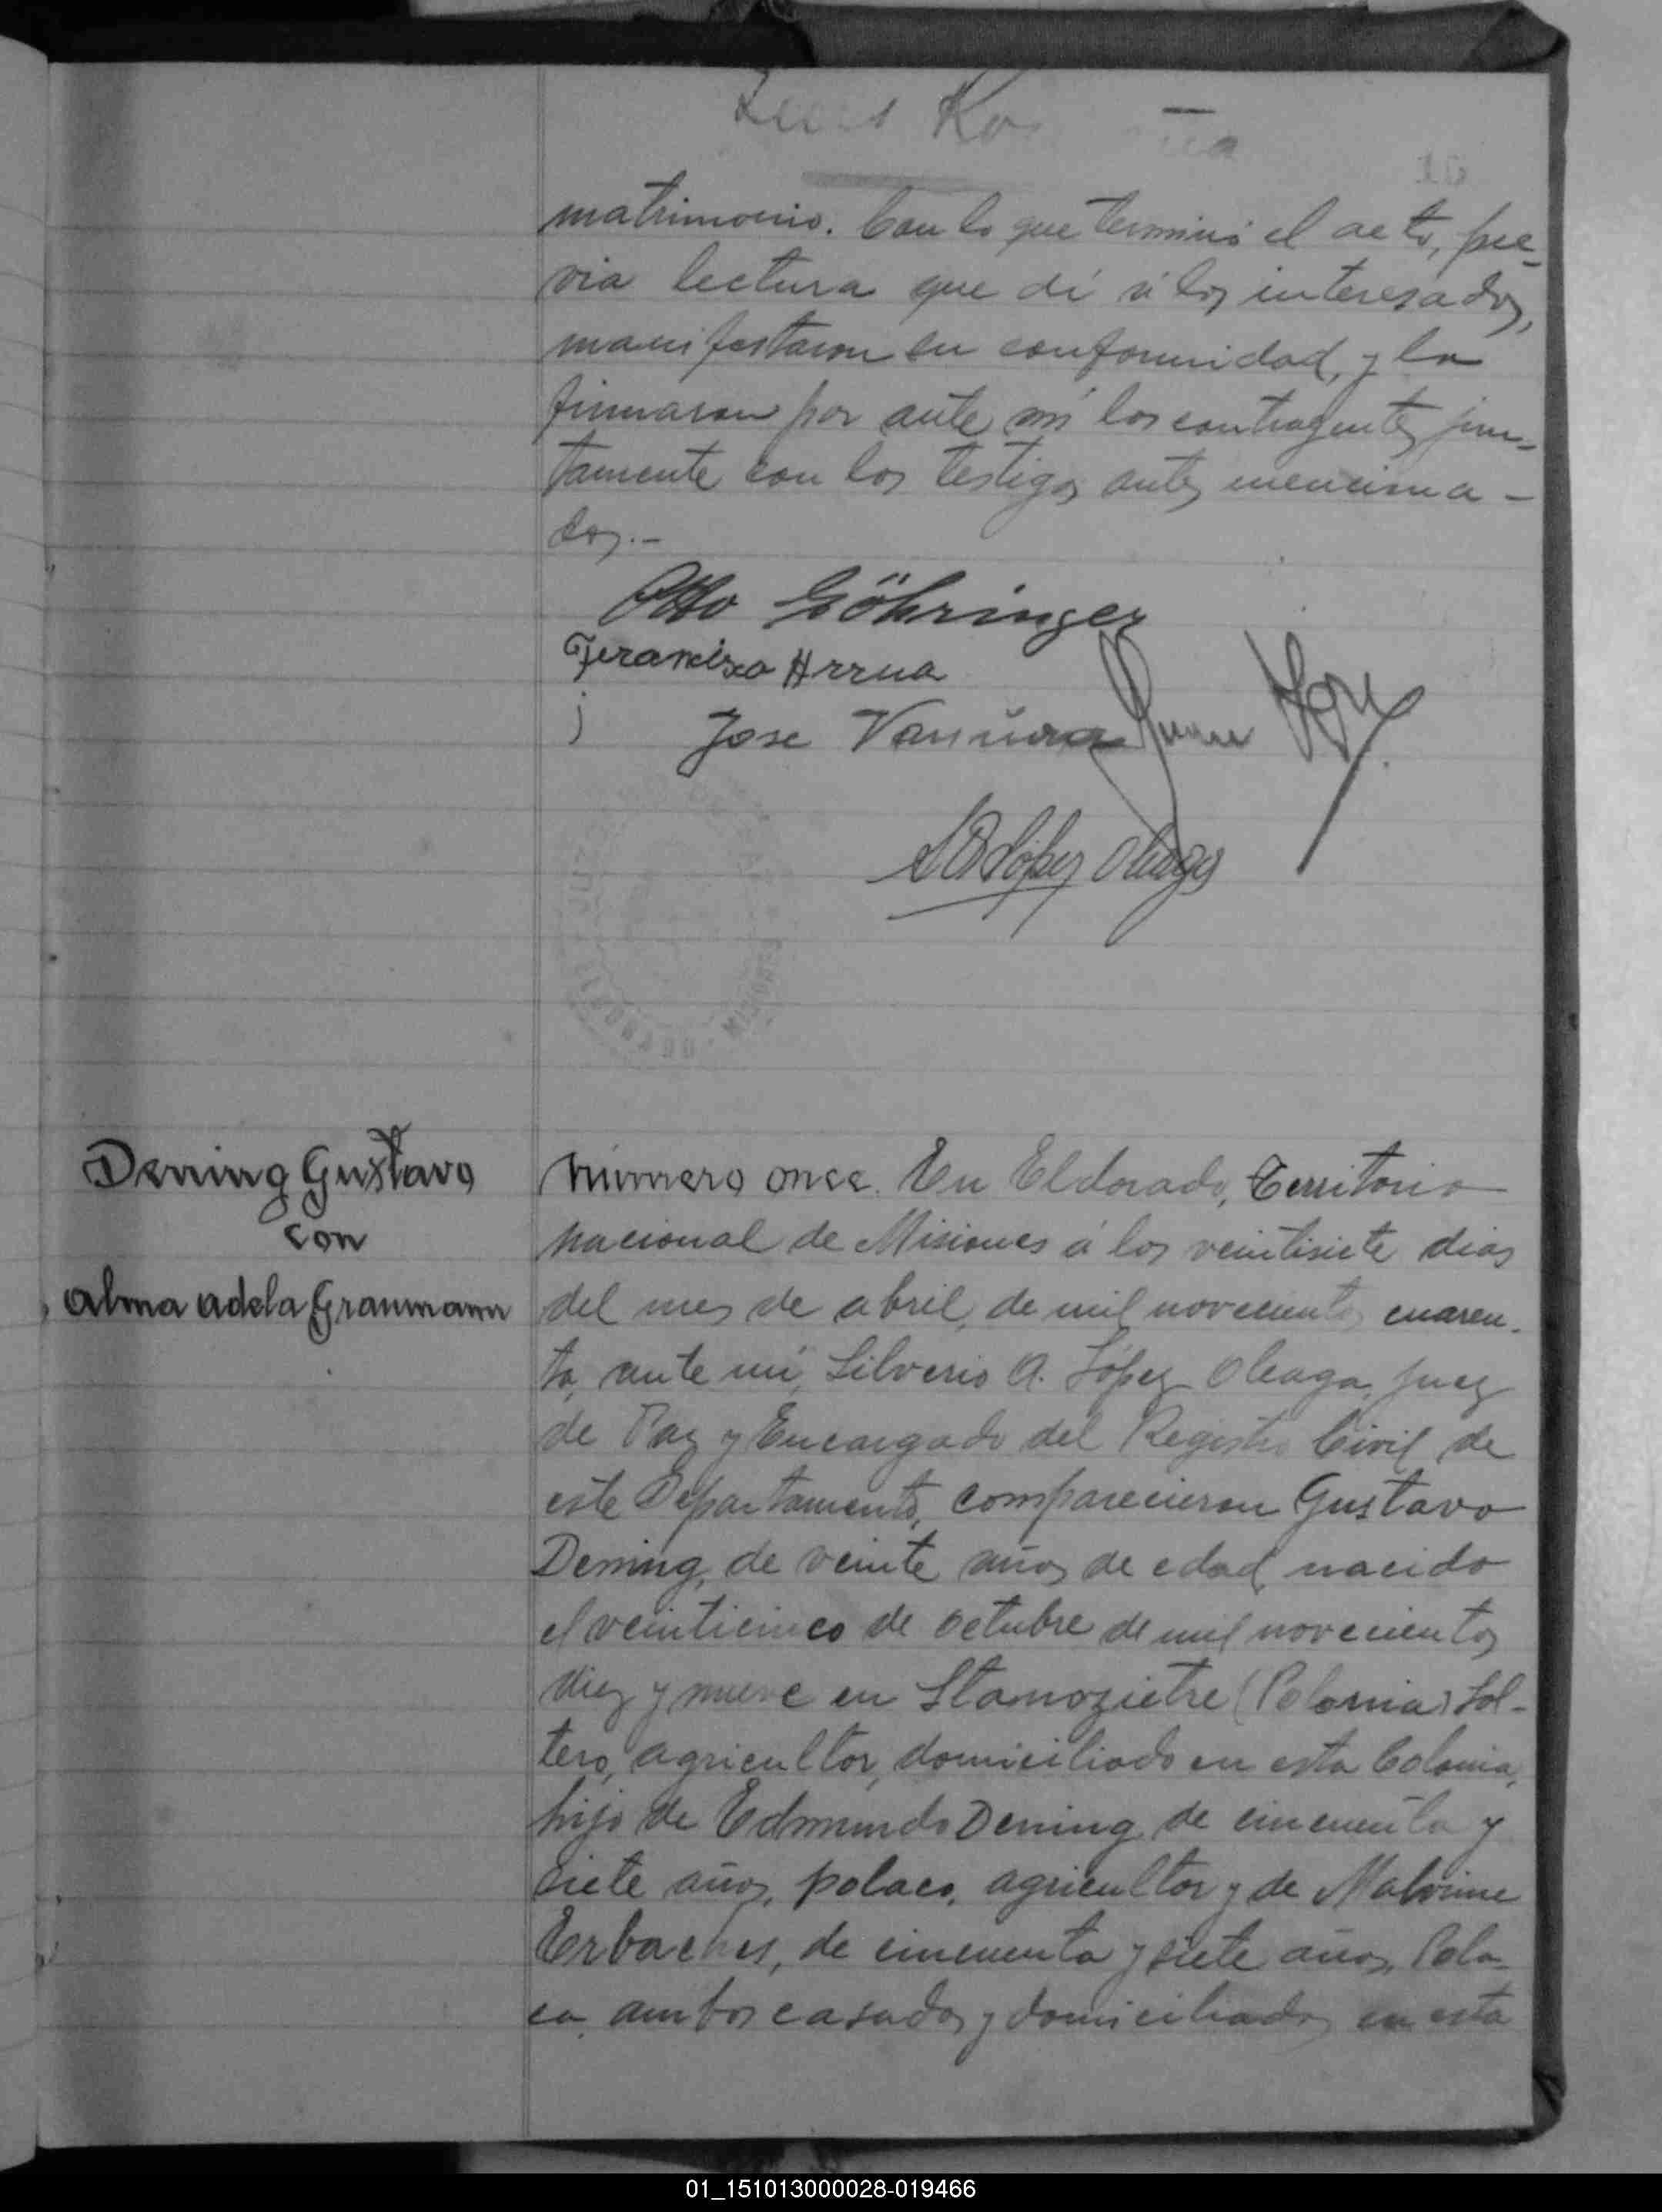 16
matrimonio. Con lo que terminó el acto, pre-
via lectura que dí á los interesados,
manifestaron su conformidad, y la
firmaron por ante mí los contrayentes jun-
tamente con los testigos antes menciona-
dos.-
Otto Göhringer
Francisco Arrua
Jose Vanura
López Oleaga
MISIONES
Dening Gustavo
con
Alma Adela Graumann
Número once. En Eldorado, Territorio
nacional de Misiones á los veintisiete dias
del mes de abril, de mil novecientos cuaren-
ta, ante mí, Silverio A. López Oleaga, Juez
de Paz y Encargado del Registro Civil de
este Departamento, comparecieron Gustavo
Dening, de veinte años de edad, nacido
el veinticinco de octubre de mil novecientos
diez y nueve en Stamozietre (Polonia) sol-
tero, agricultor, domiciliado en esta Colonia,
hijo de Edmundo Dening, de cincuenta y
siete años, polaco, agricultor y de Malvine
Erbaches, de cincuenta y siete años, Pola-
ca, ambos casados y domiciliados en esta
01_151013000028-019466